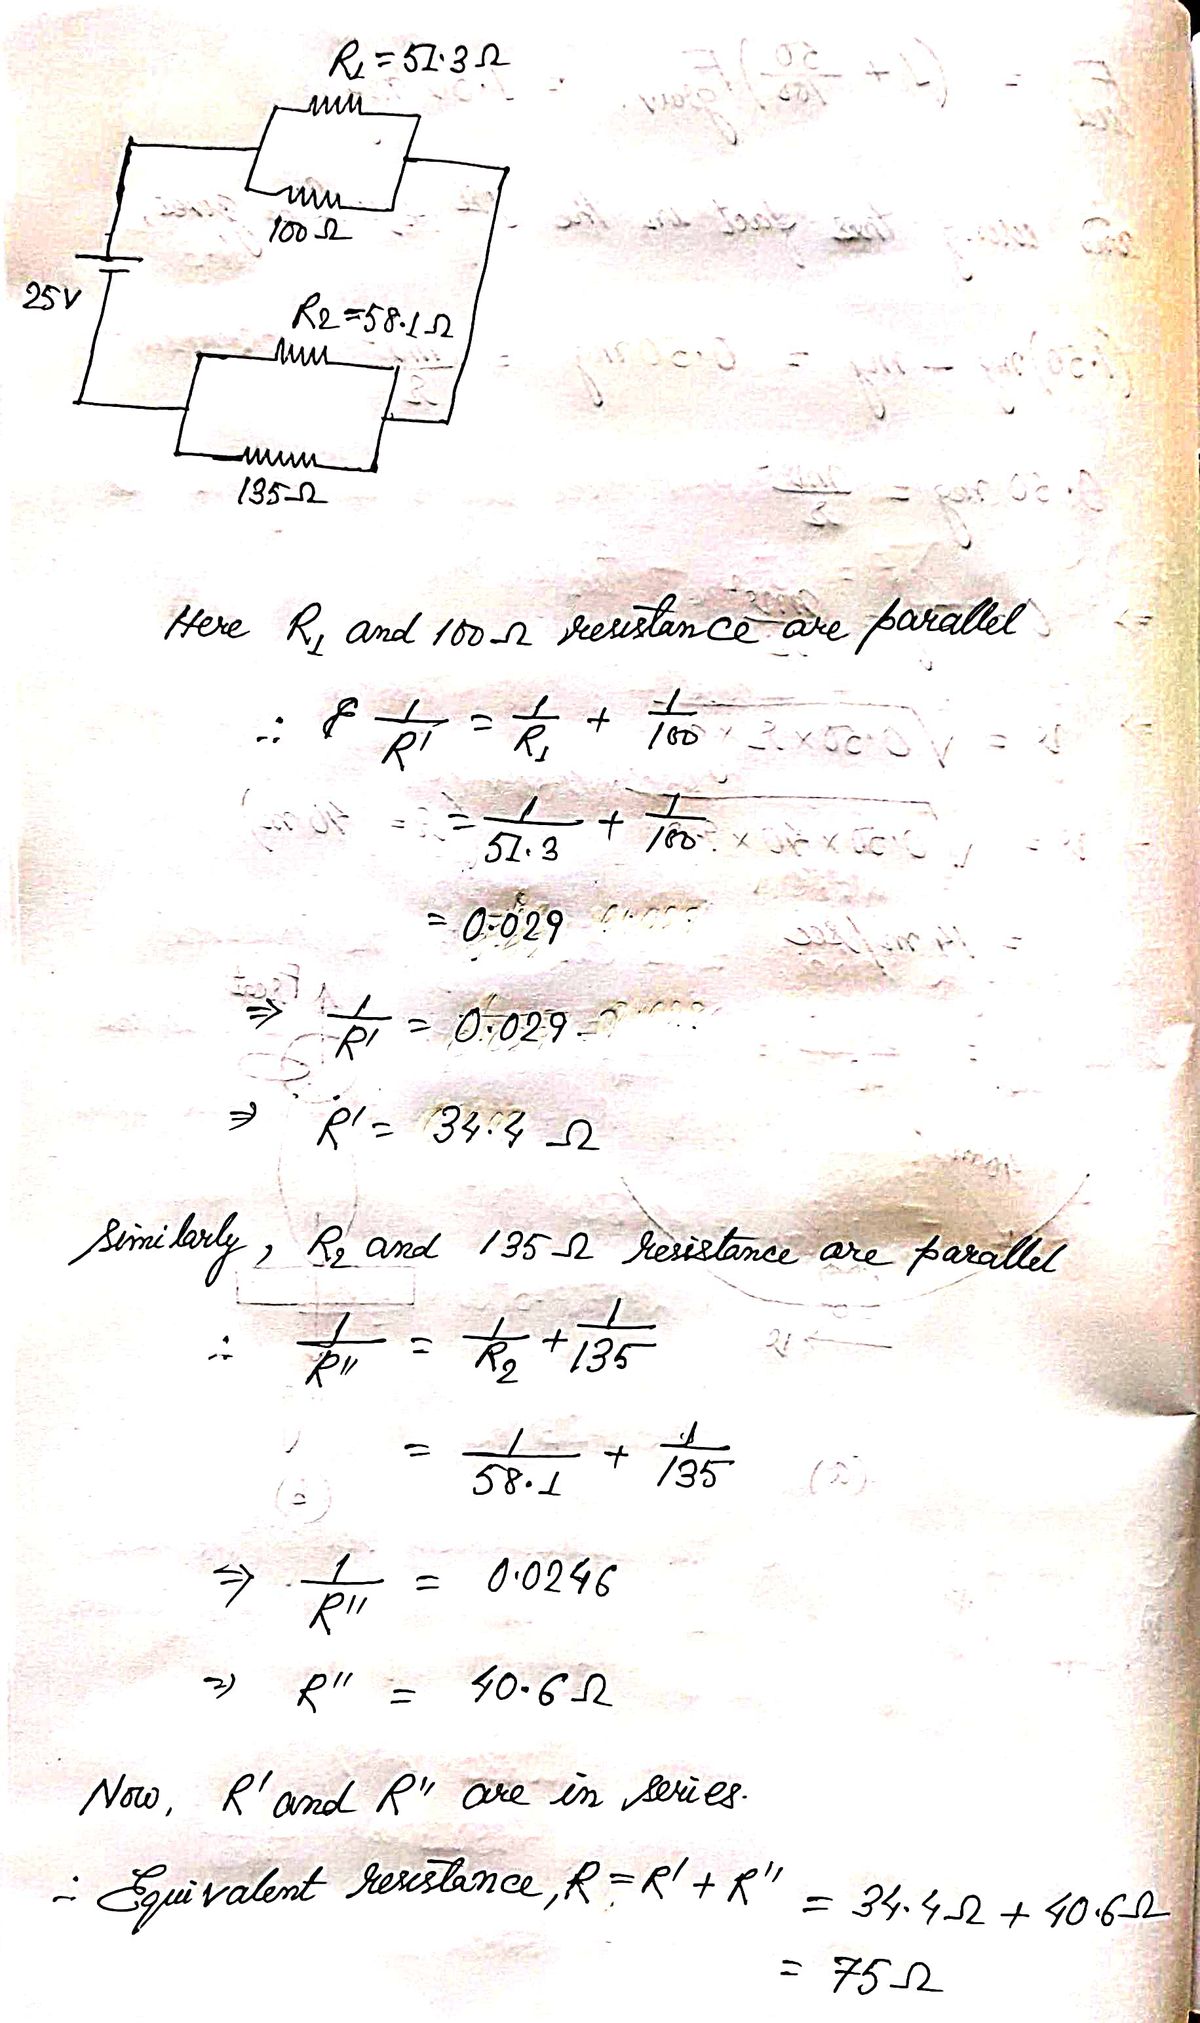 R1 = 51.3 Ω
100 Ω
25V
R2 = 58.1 Ω
135 Ω
Here R1 and 100 Ω resistance are parallel
∴ 1/R' = 1/R1 + 1/100
= 1/51.3 + 1/100
= 0.029
⇒ 1/R' = 0.029
⇒ R' = 34.4 Ω
Similarly, R2 and 135 Ω resistance are parallel
∴ 1/R'' = 1/R2 + 1/135
= 1/58.1 + 1/135
⇒ 1/R'' = 0.0246
⇒ R'' = 40.6 Ω
Now, R' and R'' are in series.
∴ Equivalent resistance, R = R' + R'' = 34.4 Ω + 40.6 Ω
= 75 Ω